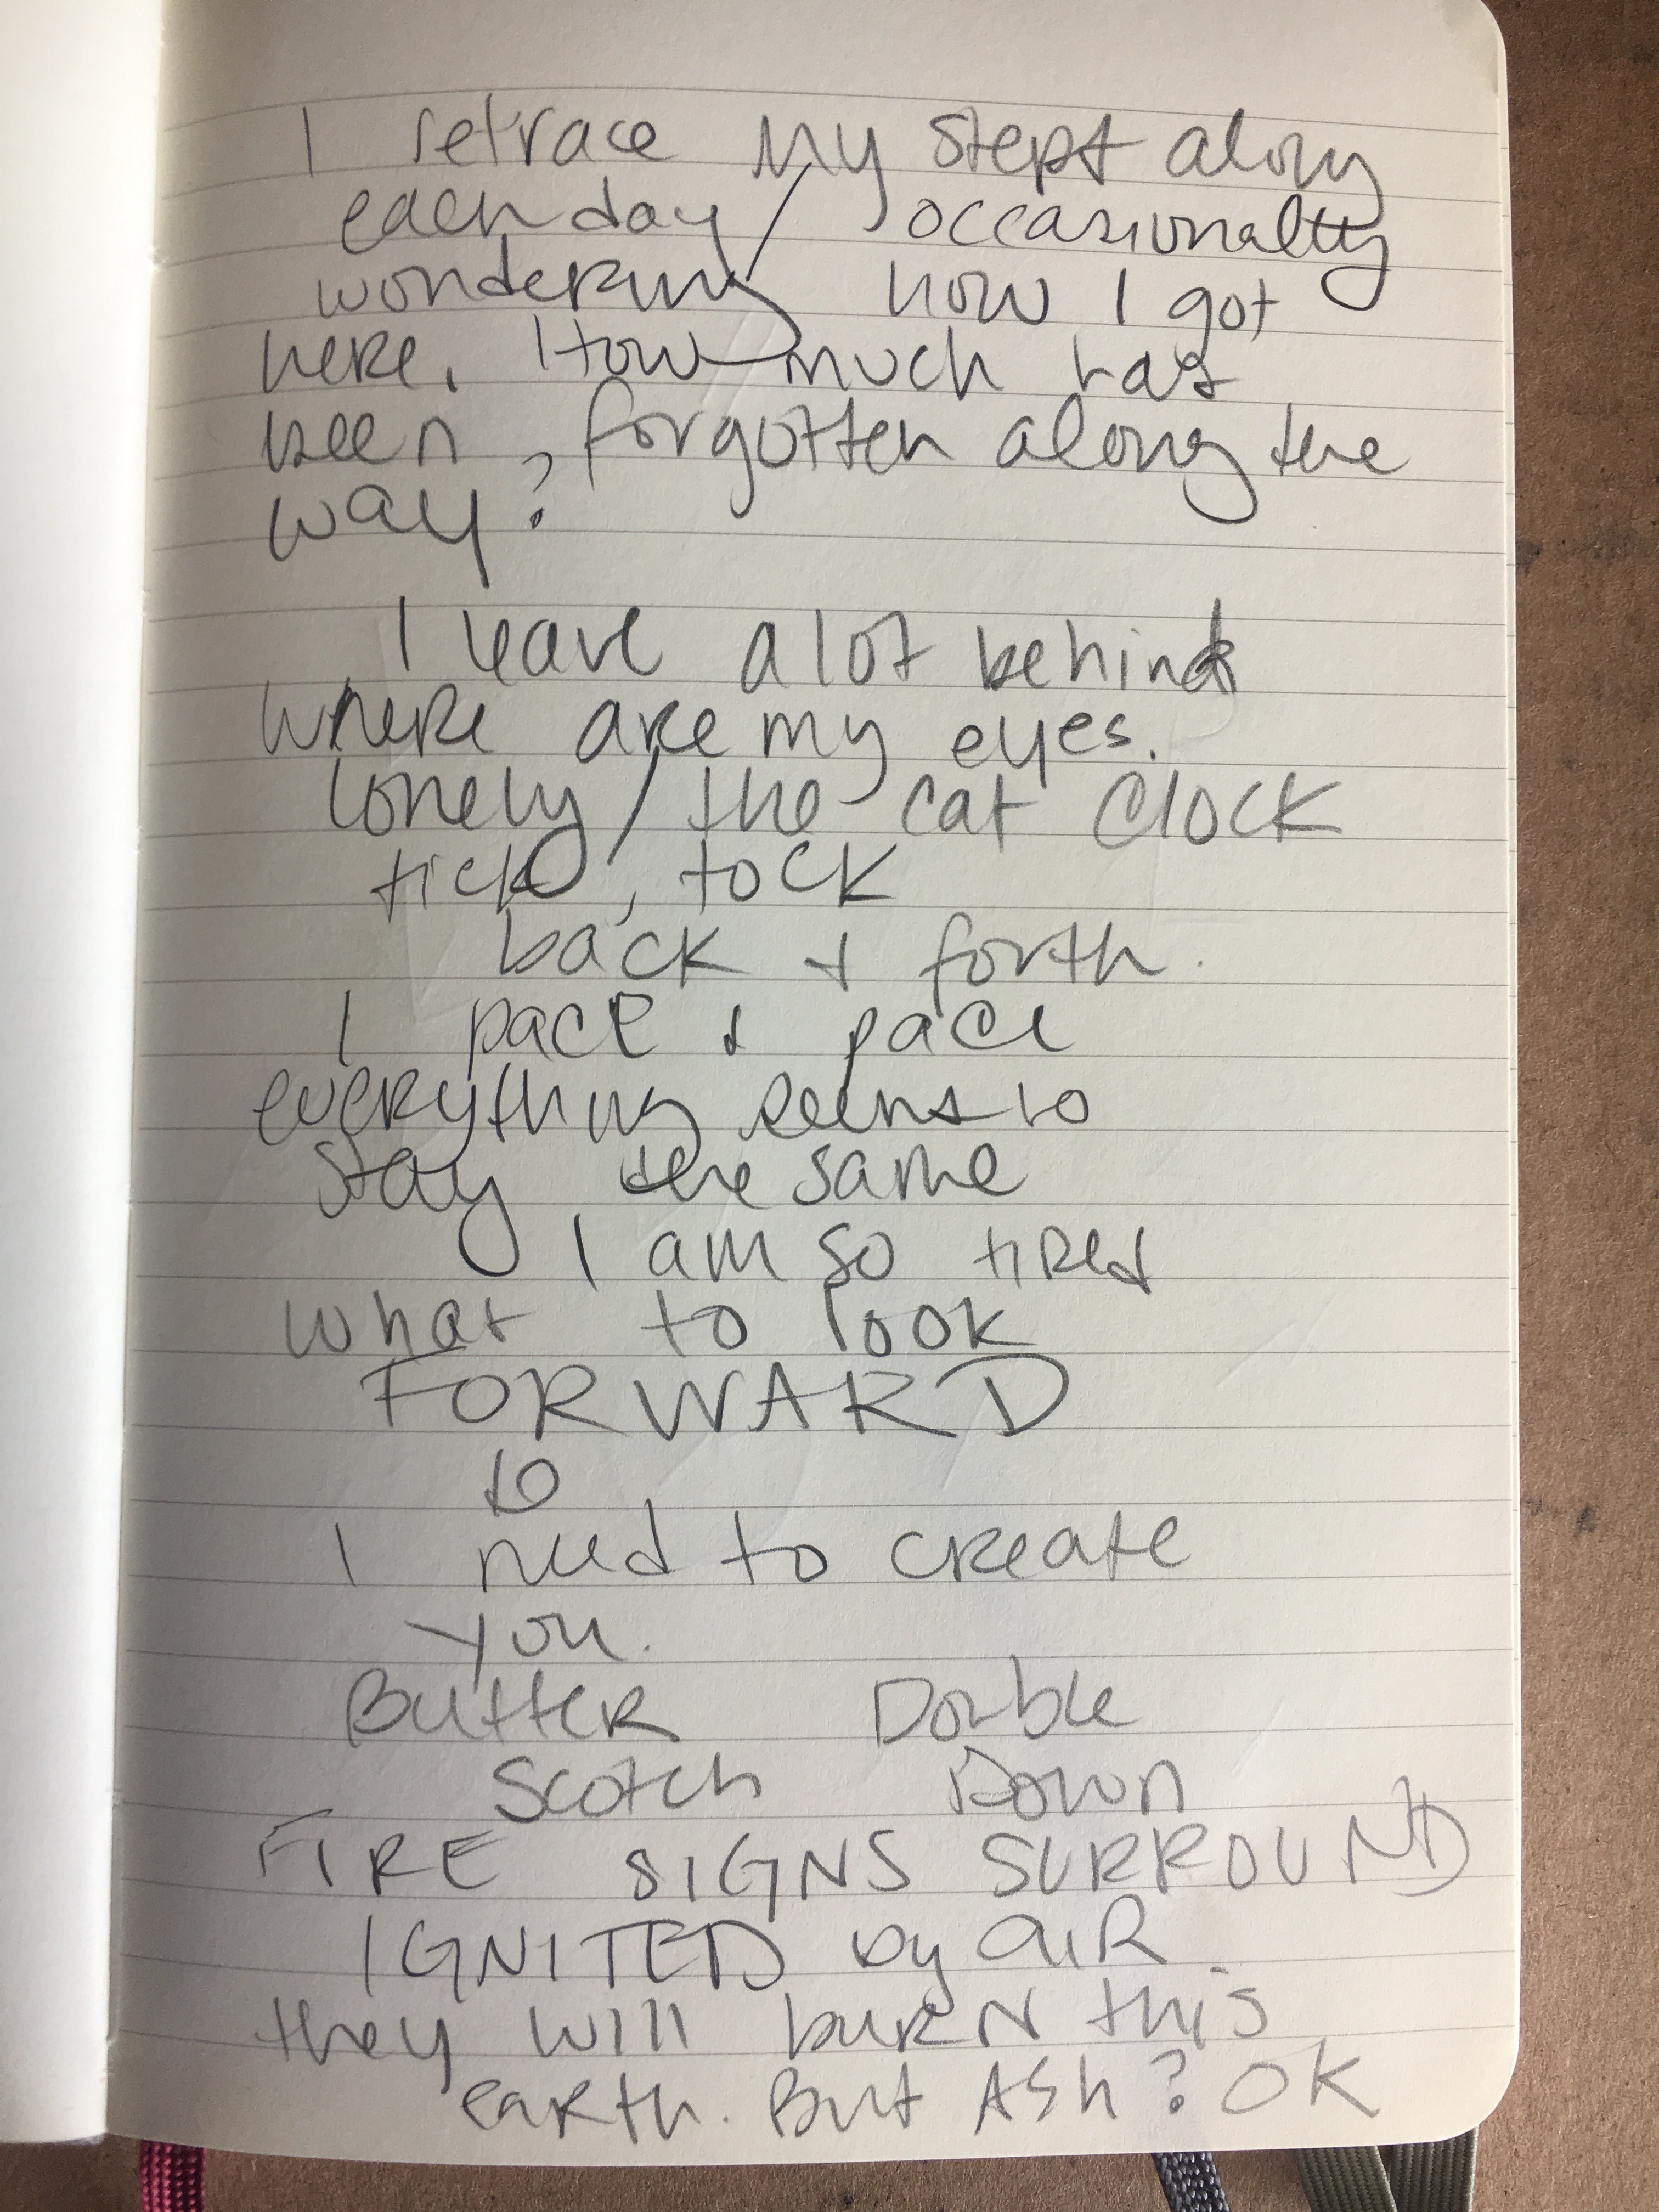 I retrace my steps along
each day / occasionally
wondering how I got
here. How much has
been, forgotten along the
way?
I leave a lot behind
where are my eyes.
lonely / the cat clock
tick, tock
back & forth.
I pace & pace
everything seems to
stay the same
I am so tired
what to look
FORWARD
to
I need to create
you.
Butter Double
Scotch Down
FIRE SIGNS SURROUND
IGNITED by aiR.
they will burN this
earth. But Ash? OK